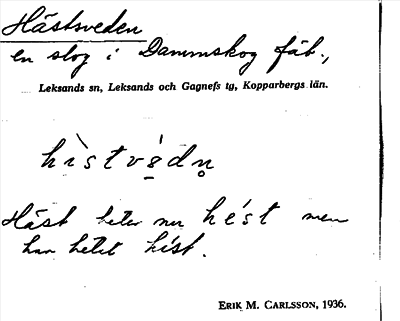 Hästsveden
en slog i Dammskog fäb.,
Leksands sn, Leksands och Gagnefs tg, Kopparbergs län.
hìstvèdn̥
Häst heter nu hést men
han hetet híst.
ERIK M. CARLSSON, 1936.